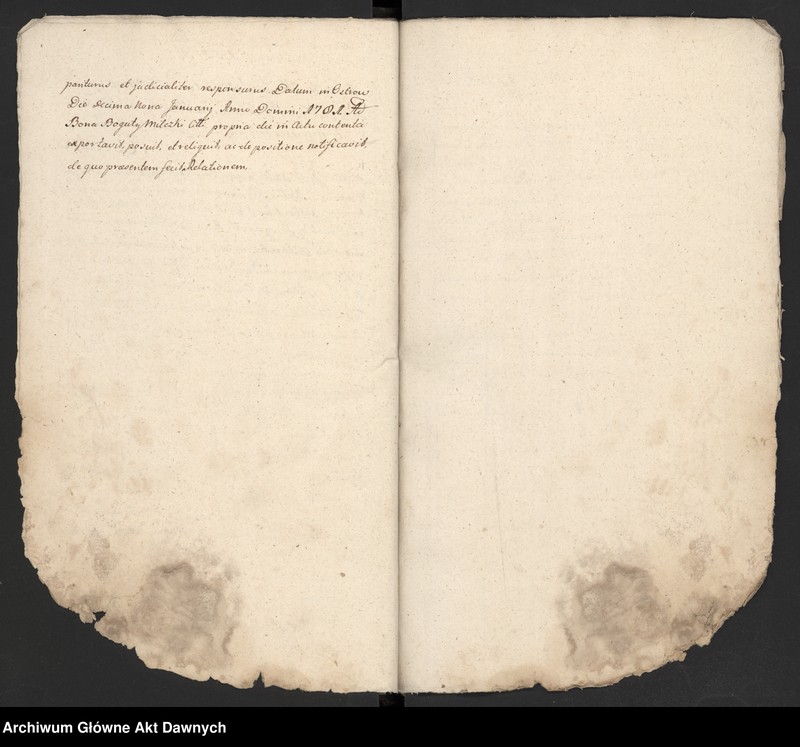 pariturus et judicialiter responsurus. Datum in Ostrow
Die decima Nona Januarij Anno Domini 1781. Ad
Bona Boguty Milczki Ott. propria die in Actu contenta
exportavit, posuit, et reliquit, ac de positione notificavit,
de quo præsentem fecit Relationem.
Archiwum Główne Akt Dawnych